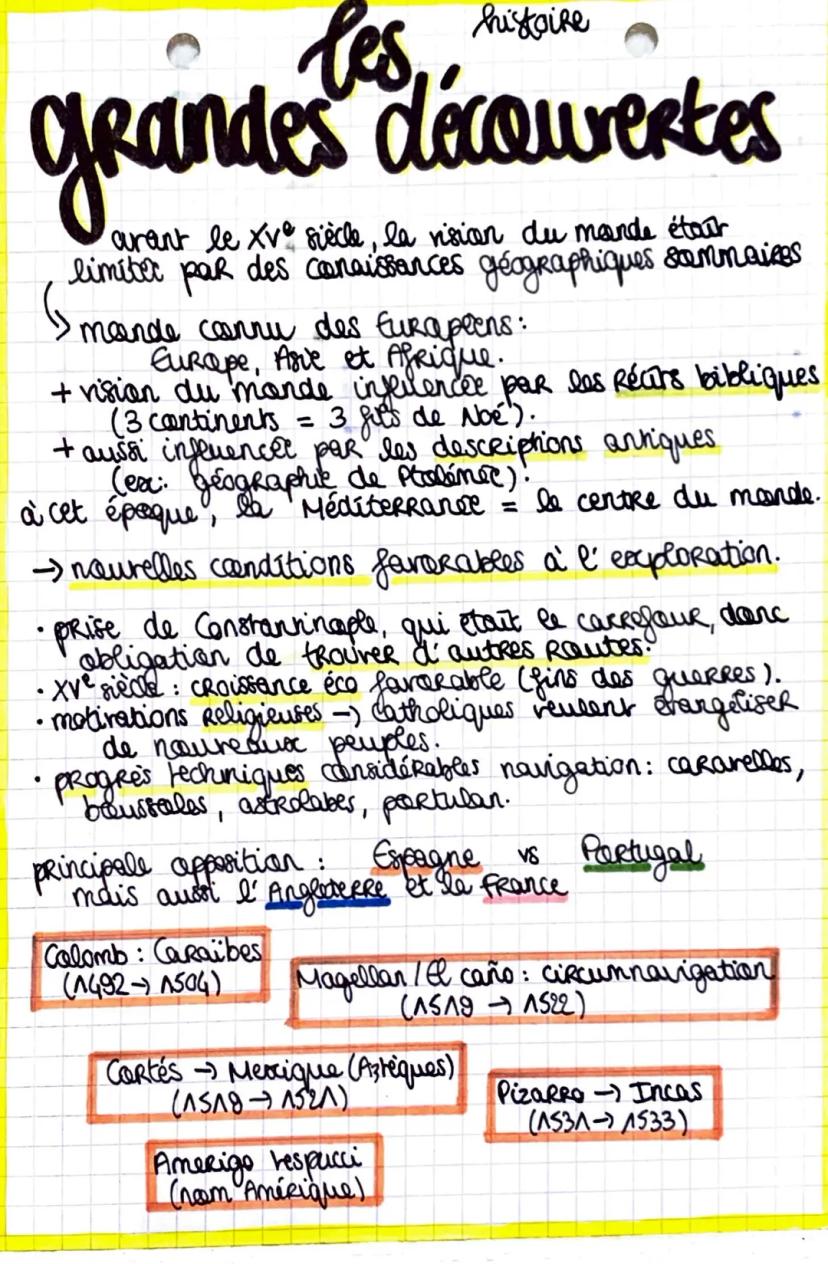 histoire
les
grandes découvertes
avant le XVe siècle, la vision du monde était
limitée par des conaissances géographiques sommaires
↳ monde connu des Européens :
Europe, Asie et Afrique.
+ vision du monde influencée par les récits bibliques
(3 continents = 3 fils de Noé).
+ aussi influencée par les descriptions antiques
(ex: géographie de Ptolémée).
à cet époque, la Méditerranée = le centre du monde.
→ nouvelles conditions favorables à l'exploration.
• prise de Constantinople, qui était le carrefour, donc
obligation de trouver d'autres routes.
• XVe siècle : croissance éco favorable (fins des guerres).
• motivations religieuses → catholiques veulent évangéliser
de nouveaux peuples.
• progrès techniques considérables navigation : caravelles,
boussoles, astrolabes, portulan.
principale opposition : Espagne vs Portugal
mais aussi l'Angleterre et la France
Colomb : Caraïbes
(1492 → 1504)
Magellan / El caño : circumnavigation
(1519 → 1522)
Cortés → Mexique (Aztèques)
(1519 → 1521)
Pizarro → Incas
(1531 → 1533)
Amerigo Vespucci
(nom Amérique)